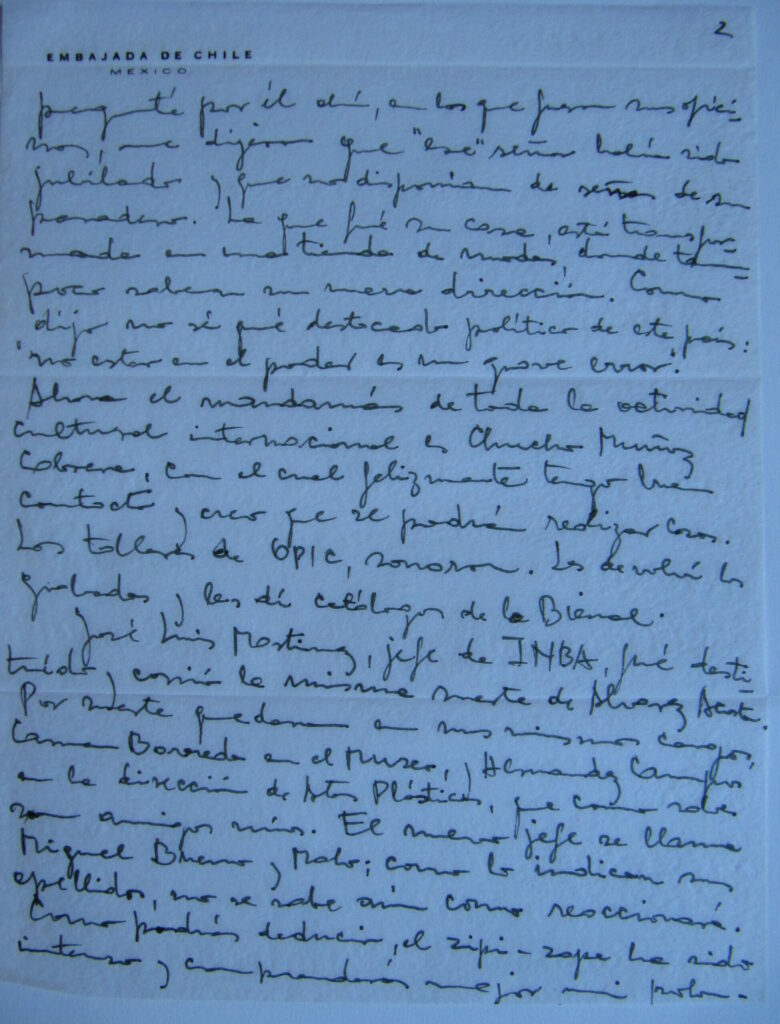 2
EMBAJADA DE CHILE
MEXICO
pregunté por él ahí, en los que fueron sus ofici-
nas, me dijeron que "ese" señor había sido
jubilado y que no disponían de señas de su
paradero. La que fué su casa, está transfor-
mada en una tienda de modas, donde tam-
poco saben su nueva dirección. Como
dijo no sé qué destacado político de este país:
"no estar en el poder es un grave error".
Ahora el mandamás de toda la actividad
cultural internacional es Chucho Muñoz
Cabrera, con el cual felizmente tengo buen
contacto y creo que se podrán realizar cosas.
Los talleres de OPIC, sonaron. Les devolví los
grabados y les dí catálogos de la Bienal.
José Luis Martinez, jefe de INBA, fué desti-
tuído y corrió la misma suerte de Alvarez Acosta.
Por suerte quedaron en sus mismos cargos,
Carmen Barreda en el Museo, y Hernandez Campos
en la dirección de Artes Plásticas, que como sabes
son amigos míos. El nuevo jefe se llama
Miguel Bueno y Malo; como lo indican sus
apellidos, no se sabe aún como reaccionará.
Como podrás deducir, el zipi-zape ha sido
intenso y comprenderás mejor mi prolon-